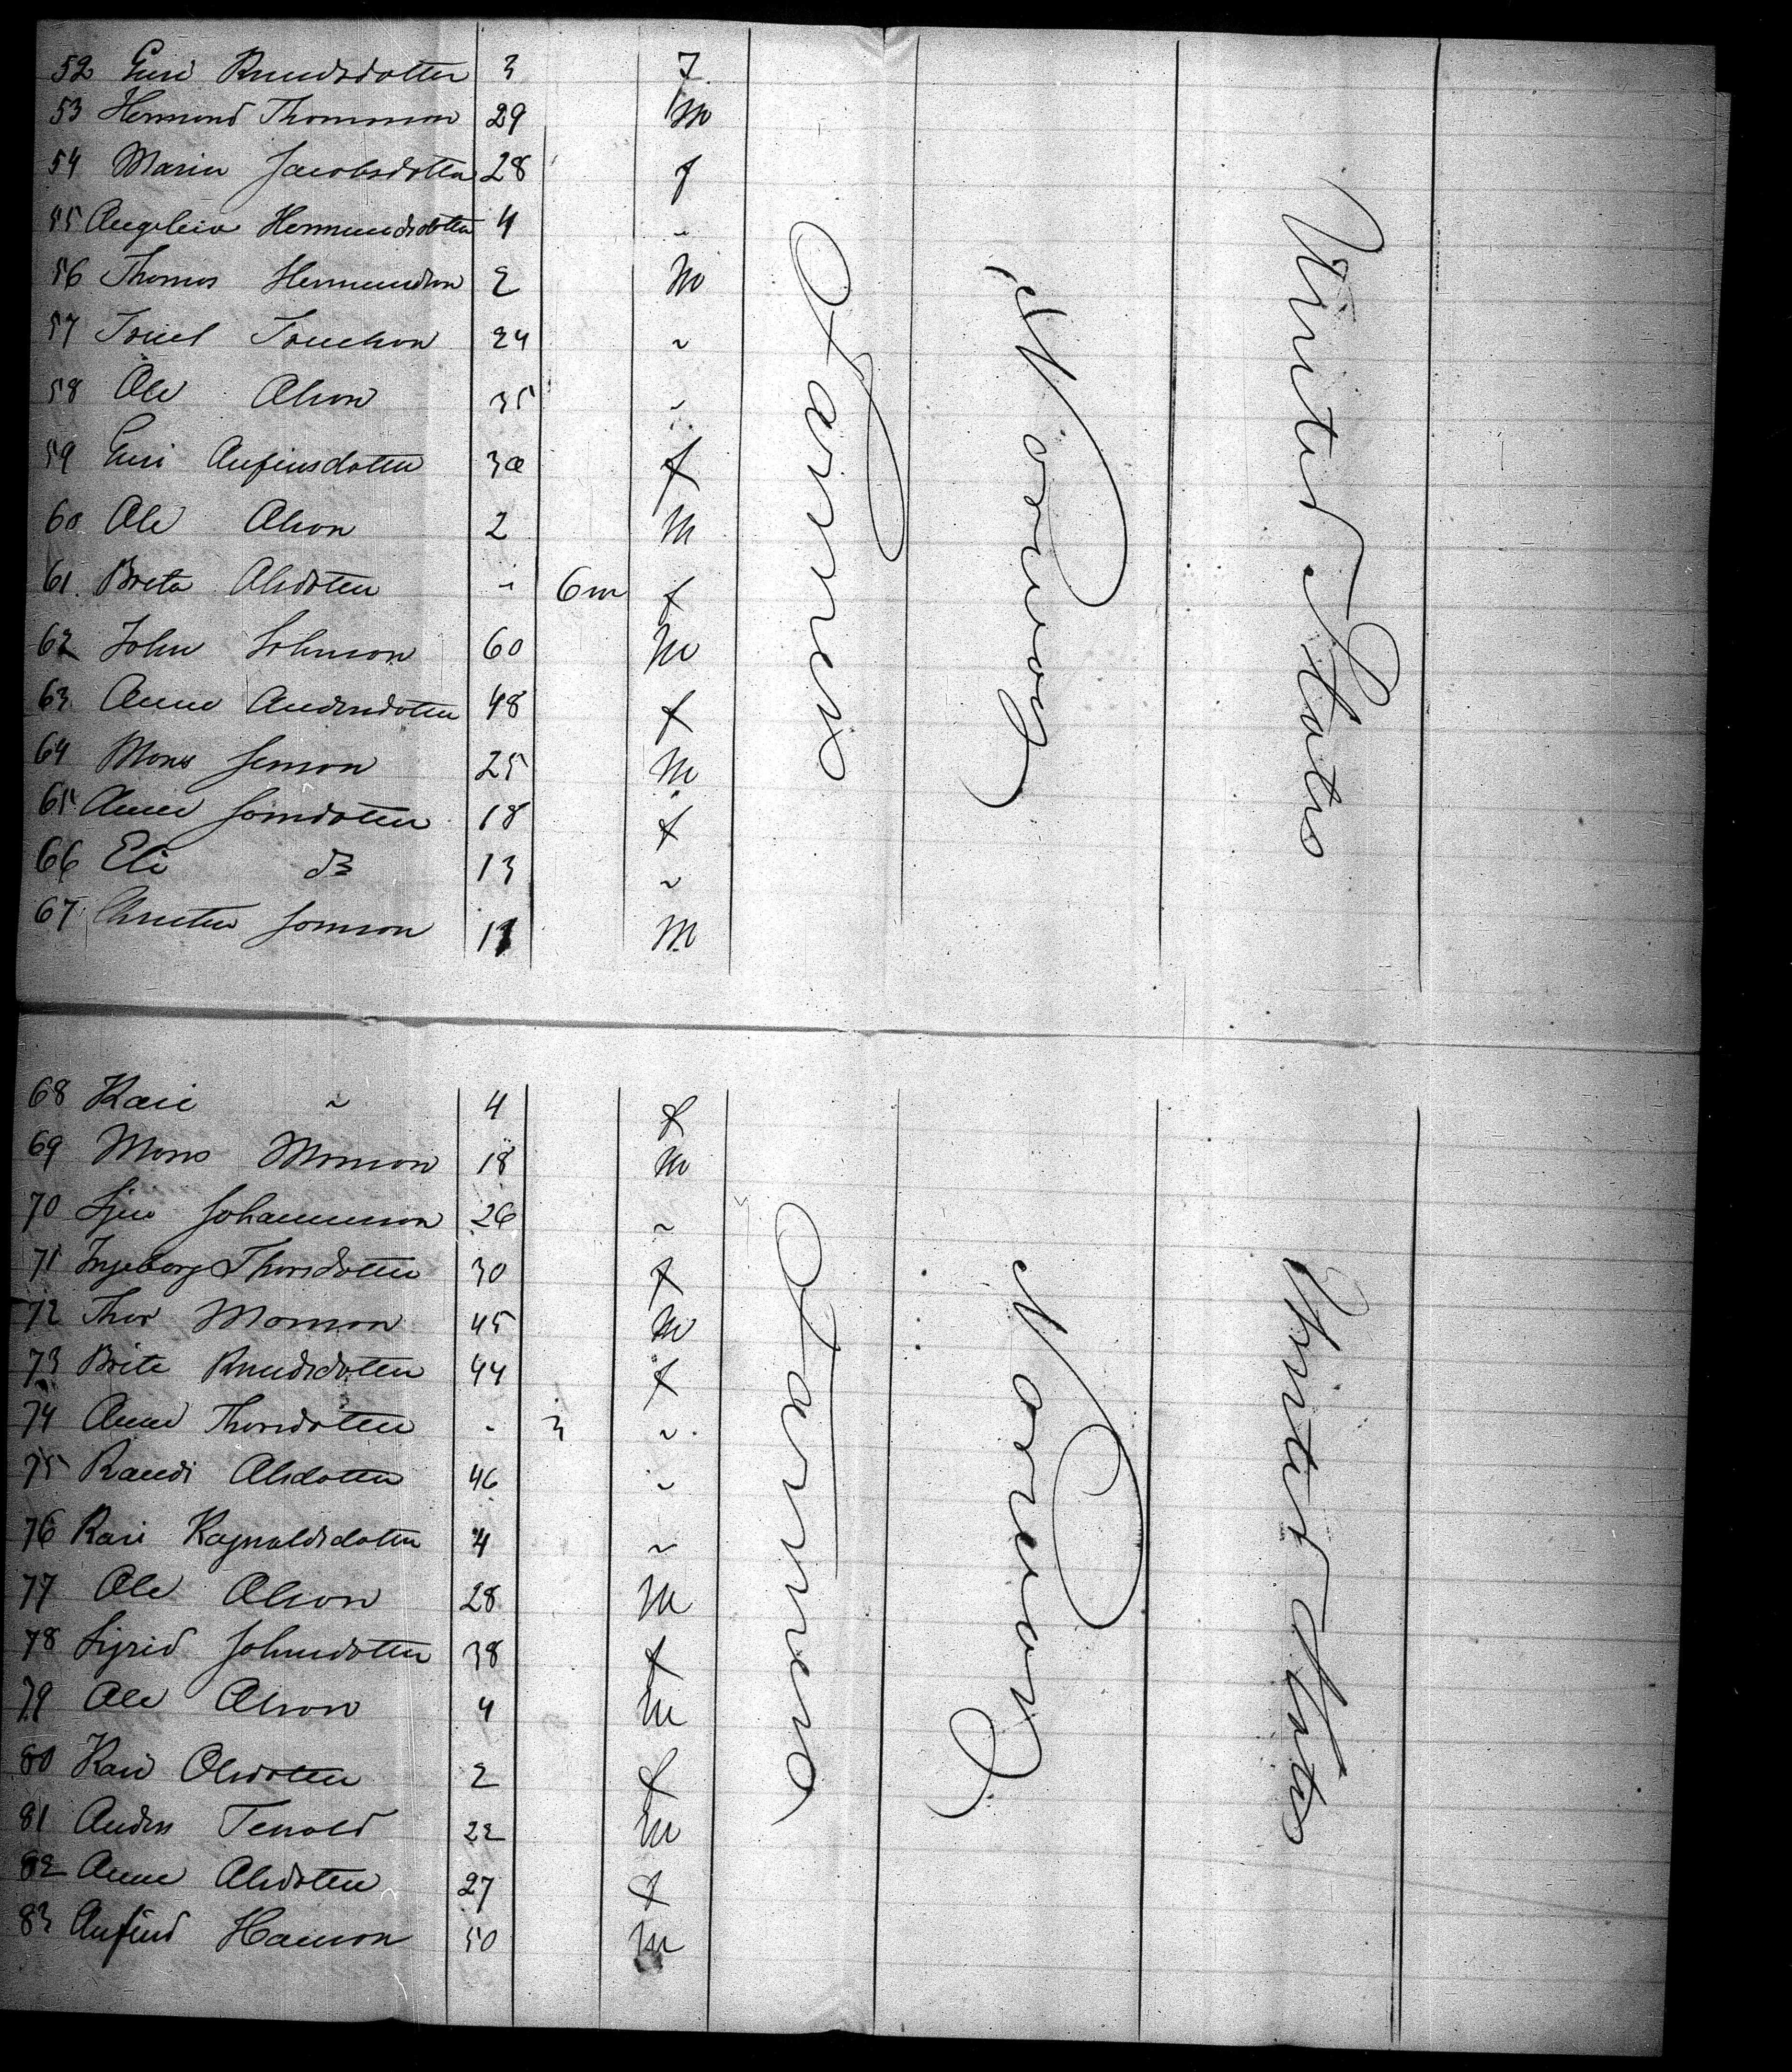 52 Guri Knudsdotter 3 F
53 Hermond Thommson 29 M
54 Maria Jacobsdotter 28 f
55 Angelica Hermundsdotter 4 "
56 Thomas Hermundson 2 M
57 24 "
58 Ole Olson 35 "
59 Guri Anfinsdotter 30 f
60 Ole Olson 2 M
61 Breta Olsdotter " 6m f
62 John Johnson 60 M
63 Anna Andersdotter 48 f
64 Mons Jenson 25 M
65 Anne Jonsdotter 18 f
66 Eli do 13 "
67 Jonson 11 M
Farmers
Norway
United States
68 Kari " 4 f
69 Mons Monson 18 M
70 Johannesson 26 "
71 Ingeborg Thorsdotter 30 f
72 Thor Monson 45 M
73 Brite Knudsdotter 44 f
74 Anne Thorsdotter - 3 "
75 Randi Olsdotter 46 "
76 Kari Ragnaldsdotter 4 "
77 Ole Olson 28 M
78 Sigrid Johnsdotter 38 f
79 Ole Olson 4 M
80 Kari Olsdotter 2 f
81 Anders Tenold 22 M
82 Anne Olsdotter 27 f
83 Anfind Hanson 50 M
Farmers
Norway
United States